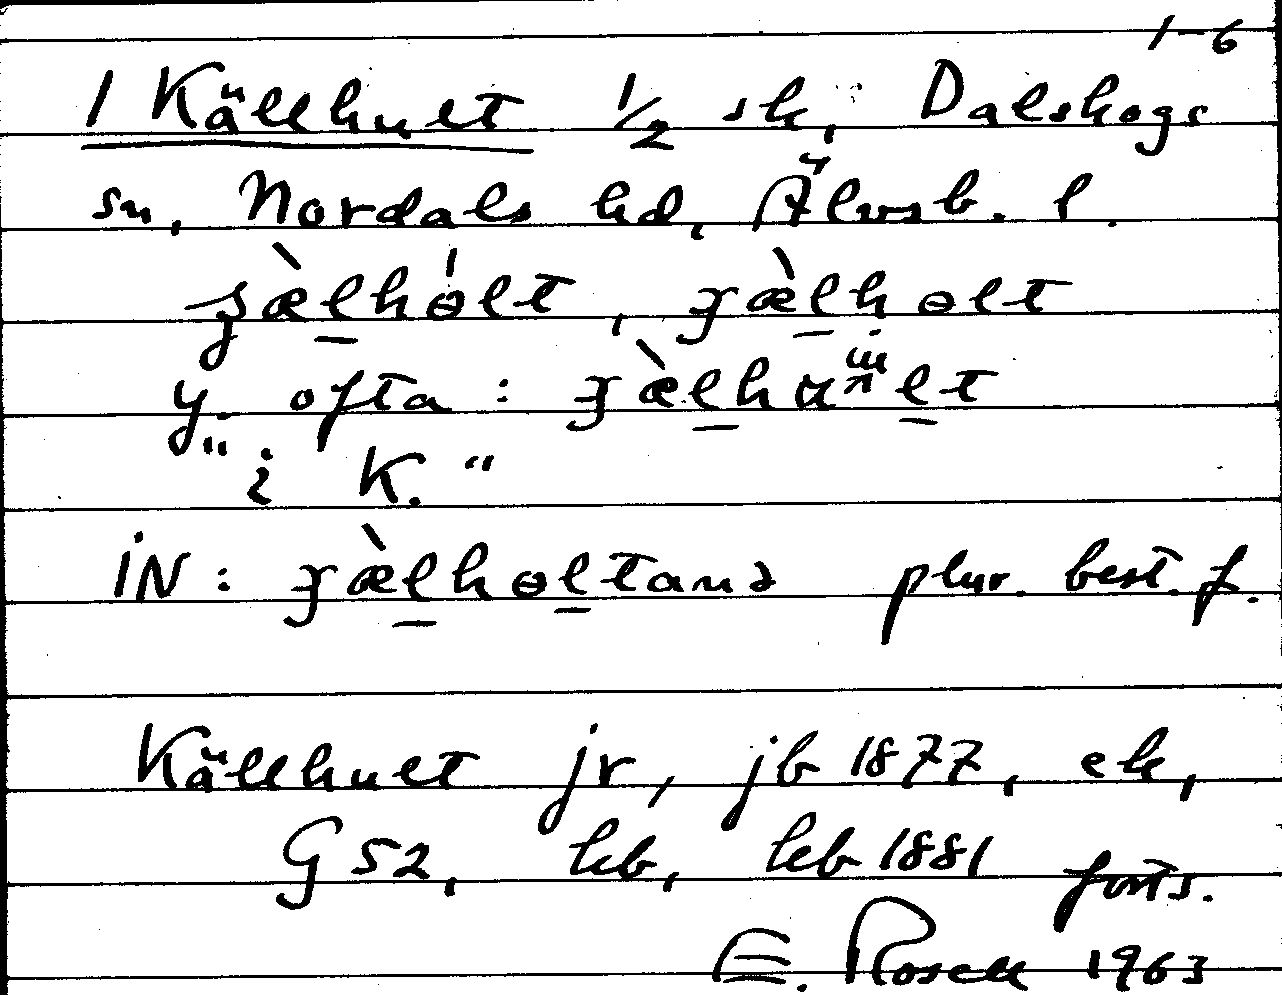 1-6
1 Källhult 1/2 sk, Dalskogs
sn, Nordals hd, Älvsb. l.
ʒæ̀lhɵ́lt, ʒæ̀lhɵlt
y. ofta: ʒæ̀lhult
"i K."
iN: ʒæ̀lhɵltana plur. best. f.
Källhult jr, jb 1877, ek,
G 52, hb, kb 1881 forts.
E. Rosell 1963